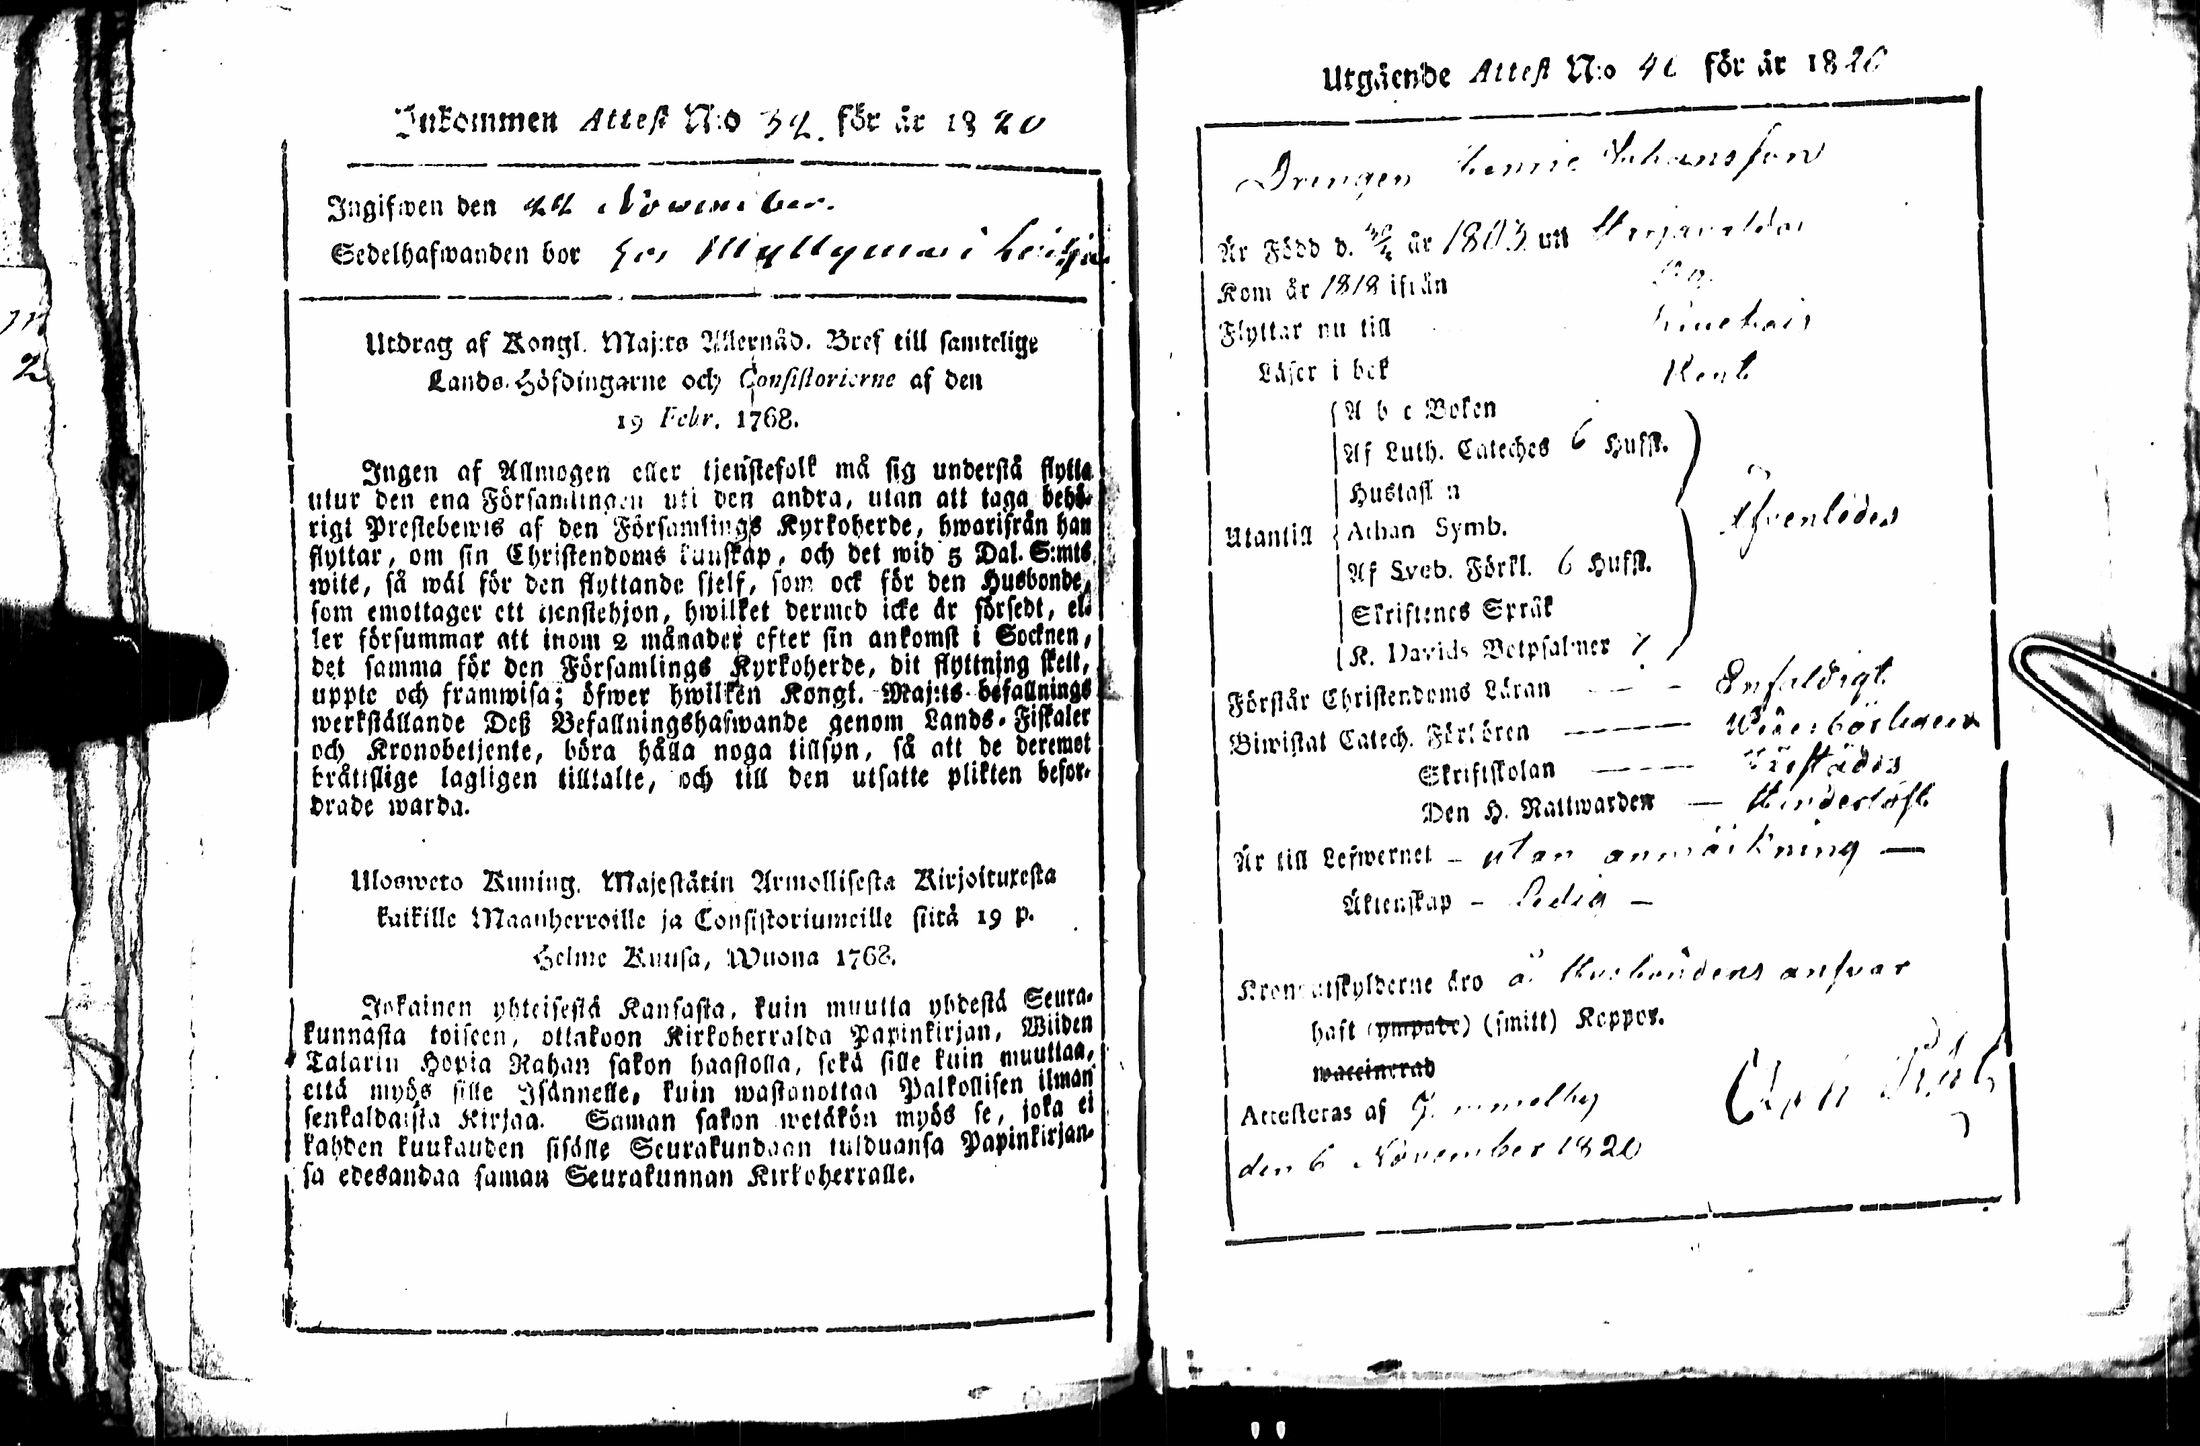 Inkommen Attest N:o 32. för år 1820
Ingifwen den 22 November.
Sedelhafwanden bor hos Myllymäe i
Utdrag af Kongl. Maj:ts Allernåd. Bref till samtelige
Lands-Höfdingarne och Consistorierne af den
19 Febr. 1768.
Ingen af Allmogen eller tjenstefolk må sig understå flytta
utur den ena Församlingen uti den andra, utan att taga behö-
rigt Prestebewis af den Församlings Kyrkoherde, hwarifrån han
flyttar, om sin Christendoms kunskap, och det wid 5 Dal. S:mts
wite, så wäl för den flyttande sjelf, som ock för den Husbonde,
som emottager ett tjenstehjon, hwilket dermed icke är försedt, el-
ler försummar att inom 2 månader efter sin ankomst i Socknen,
det samma för den Församlings Kyrkoherde, dit flyttning skett,
uppte och framwisa; öfwer hwilken Kongl. Maj:ts befallnings
werkställande Deß Befallningshafwande genom Lands-Fiskaler
och Kronobetjente, böra hålla noga tillsyn, så att de deremot
bråttslige lagligen tilltalte, och till den utsatte plikten befor-
drade warda.
Ulosweto Kuning. Majestätin Armollisesta Kirjoituxesta
kaikille Maanherroille ja Consistoriumeille siitä 19 p.
Helme Kuusa, Wuona 1768.
Jokainen yhteisestä Kansasta, kuin muutta yhdestä Seura-
kunnasta toiseen, ottakoon Kirkoherralda Papinkirjan, Wiiden
Talarin Hopia Rahan sakon haastolla, sekä sille kuin muuttaa,
että myös sille Isännelle, kuin wastanottaa Palkollisen ilman
senkaldaista Kirjaa. Saman sakon wetäkön myös se, joka ei
kahden kuukauden sisälle Seurakundaan tulduansa Papinkirjan-
sa edesandaa saman Seurakunnan Kirkoherralle.
Utgående Attest N:o för år 1820
Drengen Johansson
Är Född d. år 1803 uti
Kom år 1818 ifrån
Flyttar nu till
Läser i bok Rent
A b c Boken
Af Luth. Cateches 6 Hufst.
Hustaflan
Utantill Athan Symb. Äfvenledes
Af Sveb. Förkl. 6 Hufst.
Skriftenes Språk
K. Davids Botpsalmer 7
Förstår Christendoms Läran Enfaldigt
Biwistat Catech. Förhören Wederbörligen
Skriftskolan
Den H. Nattwarden
Är till Lefwernet - utan anmärkning -
Äktenskap - Ledig -
Kronoutskylderne äro å Husbondens ansvar
haft (ympade) (smitt) Koppor.
waccinerad
Attesteras af Gammelby
den 6 November 1820